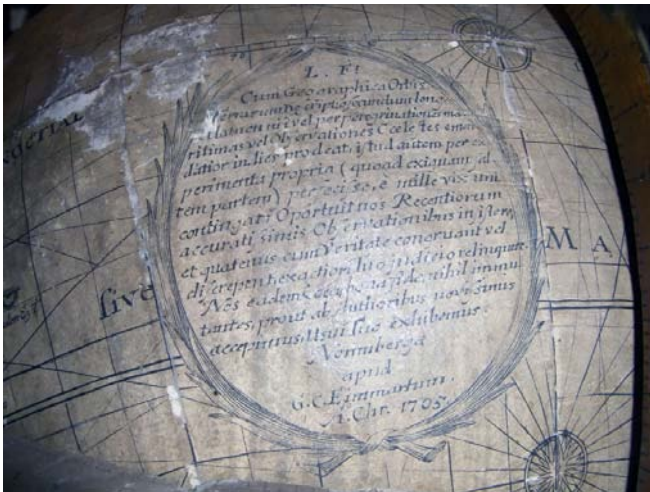 L. F!
Cum Geographica Orbis
terrarum descriptio, secundum long.
et latitud. in vel per peregrinationes ma-
ritimas vel Observationes Coelestes emen-
datior in dies prodeat, istud autem per ex-
perimenta propria (quoad exiguam sal-
tem partem) perfecisse, e mille vix uni
contingat: Oportuit nos Recentiorum
accuratissimis Observationibus insistere,
et quatenus cum Veritate congruant vel
discrepent exactiori tuo judicio relinquere.
Nos eadem, ea qua bona fide, nihil immu-
tantes, prout ab Authoribus novissimis
accepimus, Usui tuo exhibemus.
Norimbergæ
apud
G. C. Eimmartum.
A. Chr. 1705.
sive
M A